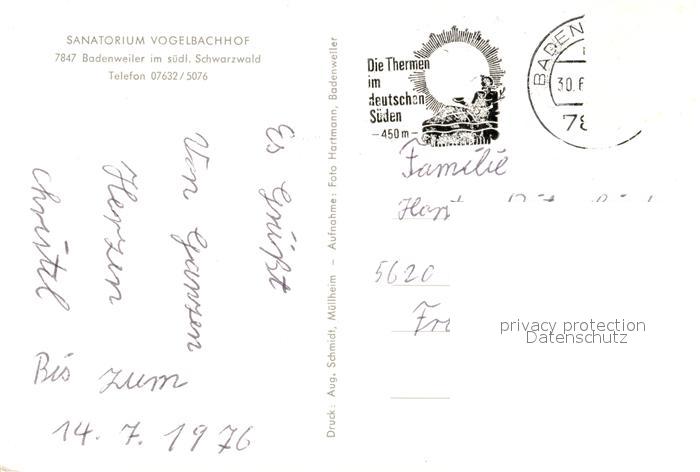 SANATORIUM VOGELBACHHOF
7847 Badenweiler im südl. Schwarzwald
Telefon 07632/5076
Es Grüßt
Von Ganzen
Herzen
Christel
Bis zum
14. 7. 1976
Druck: Aug. Schmidt, Müllheim – Aufnahme: Foto Hartmann, Badenweiler
Die Thermen
im
deutschen
Süden
– 450 m –
BADEN
30.6
78
Familie
5620
privacy protection
Datenschutz